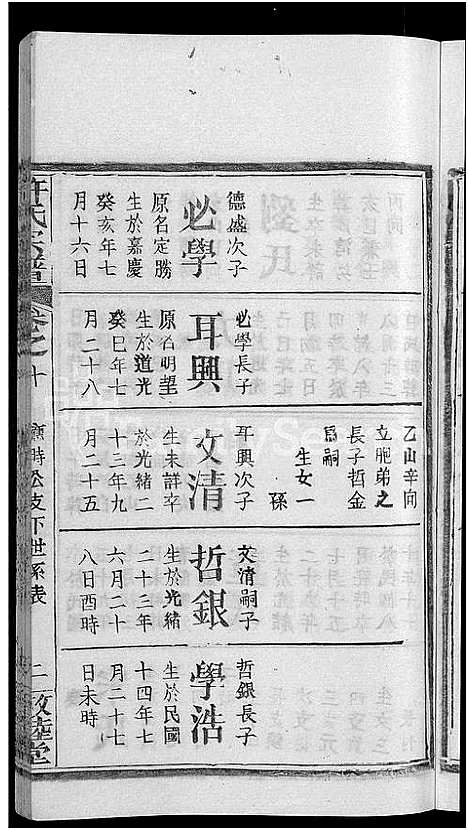 乙山辛向
立胞弟之
長子哲金
爲嗣
生女一
德盛次子
必學
原名定勝
生於嘉慶
癸亥年七
月十六日
必學長子
耳興
原名明望
生於道光
癸巳年七
月二十八
耳興次子
文清
生未詳卒
於光緒二
十三年九
月二十五
文清嗣子
哲銀
生於光緒
二十三年
六月二十
八日酉時
哲銀長子
學浩
生於民國
十四年七
月二十七
日未時
許氏宗譜
卷之十
公支下世系表
二
敦睦堂